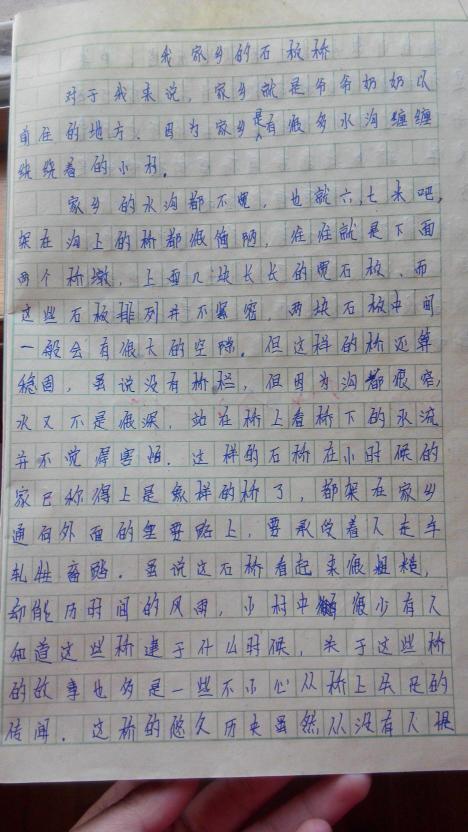 我家乡的石板桥
对于我来说，家乡就是爷爷奶奶以
前住的地方。因为家乡是有很多水沟缠缠
绕绕着的小村。
家乡的水沟都不宽，也就六,七米吧,
架在沟上的桥都很简陋，往往就是下面
两个桥墩，上面几块长长的宽石板，而
这些石板排列并不紧密，两块石板中间
一般会有很大的空隙。但这样的桥还算
稳固，虽说没有桥栏，但因为沟都很窄,
水又不是很深，站在桥上看桥下的水流
并不觉得害怕。这样的石桥在小时候的
家已称得上是象样的桥了，都架在家乡
通向外面的重要路上，要承受着人走车
轧牲畜踏。虽说这石桥看起来很粗糙，
却能历时间的风雨，小村中很少有人
知道这些桥建于什么时候，关于这些桥
的故事也多是一些不小心从桥上的
传闻。这桥的悠久历史虽然从没有人提